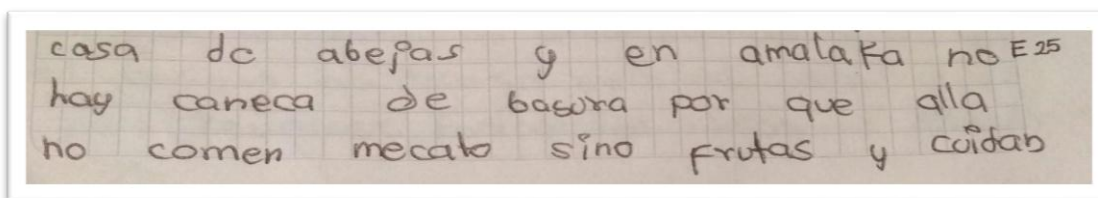 casa de abejas y en amalaka no E25
hay caneca de basura por que alla
no comen mecato sino frutas y cuidan